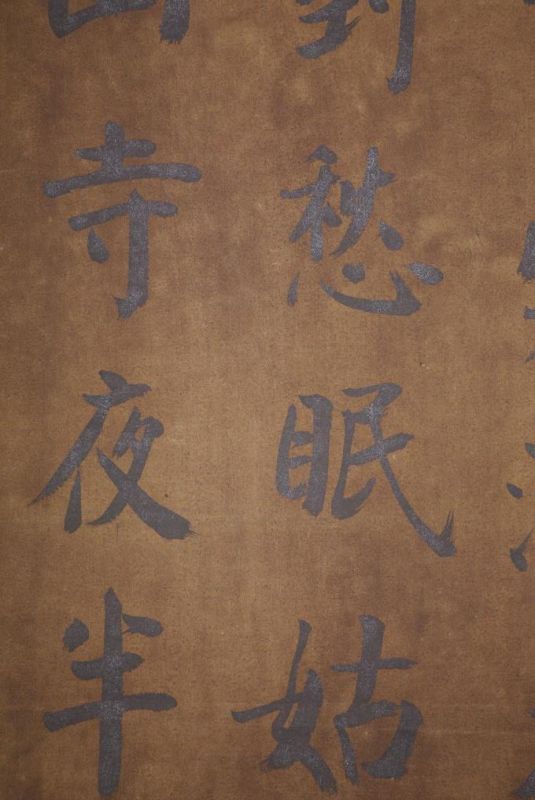 對愁眠姑
山寺夜半